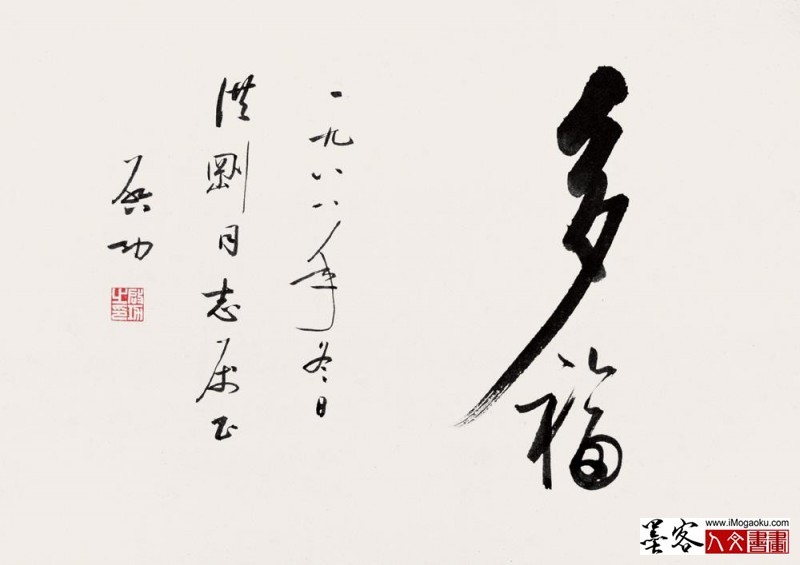 多福
一九八八年冬日
洪剛同志属正
启功
啟功之印
墨客
www.iMogaoku.com
人文書畫